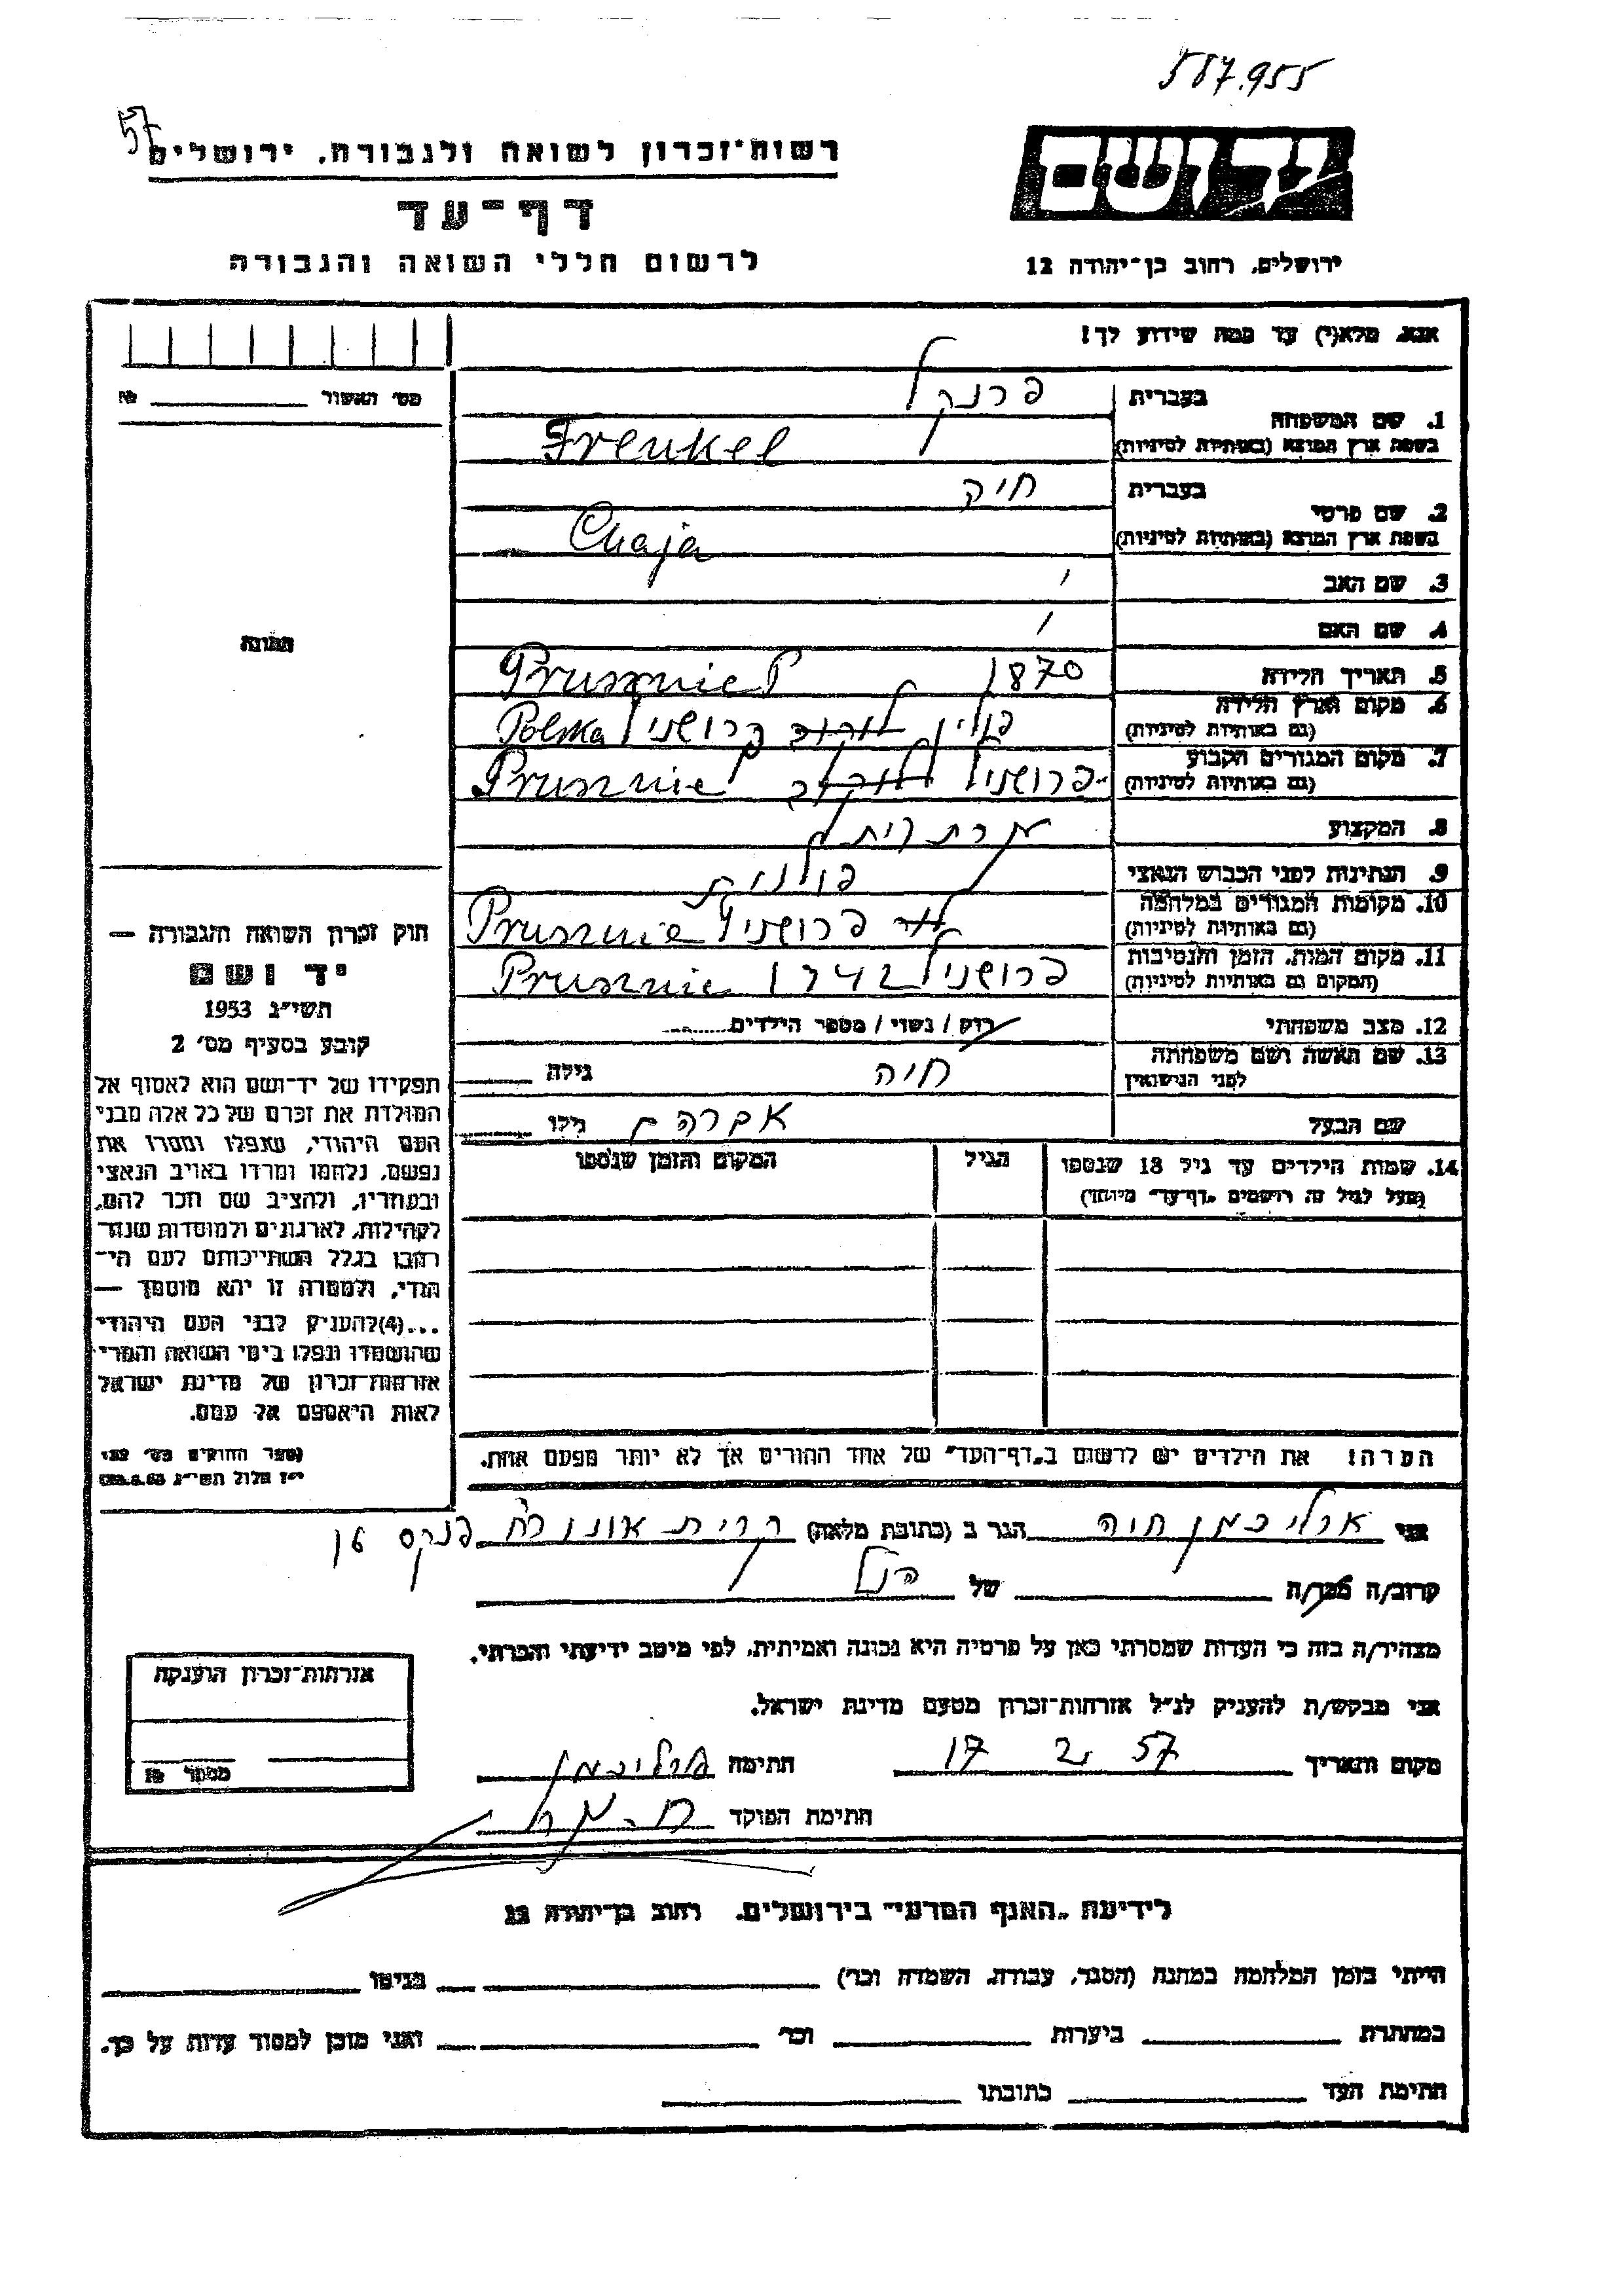 587.955
57
רשות־זכרון לשואה ולגבורה, ירושלים
יד ושם
דף־עד
לרשום חללי השואה והגבורה
ירושלים, רחוב בן־יהודה 12
אנא, מלא(י) עד כמה שידוע לך!
מס׳ האשור № 
1. שם המשפחה
בעברית פרנקל
בשפת ארץ המוצא (באותיות לטיניות) Frenkel
2. שם פרטי
בעברית חיה
בשפת ארץ המוצא (באותיות לטיניות) Chaja
3. שם האב
4. שם האם
5. תאריך הלידה 1870
6. מקום וארץ הלידה
(גם באותיות לטיניות) פולין פרושניץ Polska
7. מקום המגורים הקבוע
(גם באותיות לטיניות) פרושניץ
8. המקצוע
9. הנתינות לפני הכבוש הנאצי פולנית
10. מקומות המגורים במלחמה
(גם באותיות לטיניות) פרושניץ
11. מקום המות, הזמן והנסיבות
(המקום גם באותיות לטיניות) פרושניץ 1942
12. מצב משפחתי רוק / נשוי / מספר הילדים
13. שם האשה ושם משפחתה
לפני הנישואין חיה גילה
שם הבעל אברהם גילו
14. שמות הילדים עד גיל 18 שנספו
(מעל לגיל זה רושמים „דף־עד״ מיוחד)
הגיל
המקום והזמן שנספו
הערה! את הילדים יש לרשום ב„דף־העד״ של אחד ההורים אך לא יותר מפעם אחת.
תמונה
חוק זכרון השואה והגבורה —
יד ושם
תשי״ג 1953
קובע בסעיף מס׳ 2
תפקידו של יד־ושם הוא לאסוף אל
המולדת את זכרם של כל אלה מבני
העם היהודי, שנפלו ומסרו את
נפשם, נלחמו ומרדו באויב הנאצי
ובעוזריו, ולהציב שם וזכר להם,
לקהילות, לארגונים ולמוסדות שנח־
רבו בגלל השתייכותם לעם הי־
הודי, ולמטרה זו יהא מוסמך —
...(4)להעניק לבני העם היהודי
שהושמדו ונפלו בימי השואה והמרי
אזרחות־זכרון של מדינת ישראל
לאות היאספם אל עמם.
(ספר החוקים מס׳ 132
י״ז אלול תשי״ג 28.8.53)
אני ארליכמן חיה הגר ב (כתובת מלאה) קרית אונו
קרוב/ה מכר/ה של הנ״ל
מצהיר/ה בזה כי העדות שמסרתי כאן על פרטיה היא נכונה ואמיתית, לפי מיטב ידיעתי והכרתי.
אני מבקש/ת להעניק לנ״ל אזרחות־זכרון מטעם מדינת ישראל.
מקום ותאריך 17 2 57 חתימה ארליכמן
חתימת הפוקד
אזרחות־זכרון הוענקה
מספר №
לידיעת „האגף המדעי״ בירושלים, רחוב בן־יהודה 12
הייתי בזמן המלחמה במחנה (הסגר, עבודה, השמדה וכו׳) בגיטו
במחתרת ביערות וכו׳ ואני מוכן למסור עדות על כך.
חתימת העד כתובתו